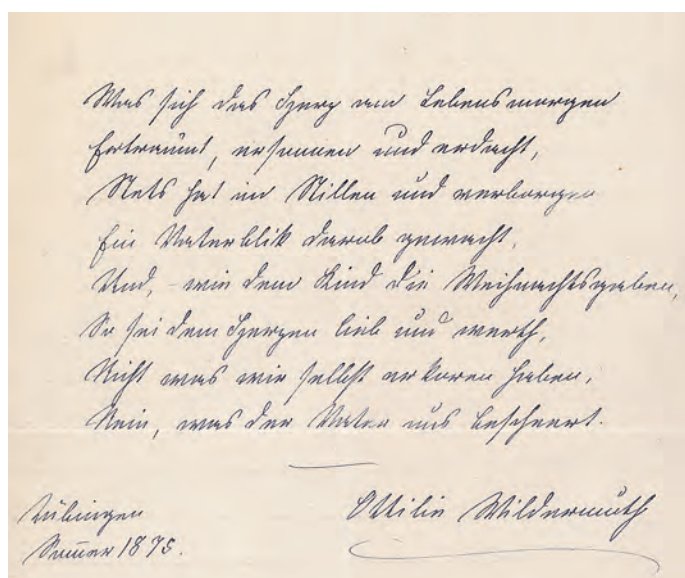 Was sich das Herz am Lebensmorgen
Erträumt, ersonnen und erdacht,
Stets hat im Stillen und verborgen
Ein Vaterblik darob gewacht,
Und, - wie dem Kind die Weihnachtsgaben,
So sei dem Herzen lieb und werth,
Nicht was wir selbst erkoren haben,
Nein, was der Vater uns bescheert.
Tübingen
Ottilie Wildermuth
Sommer 1875.